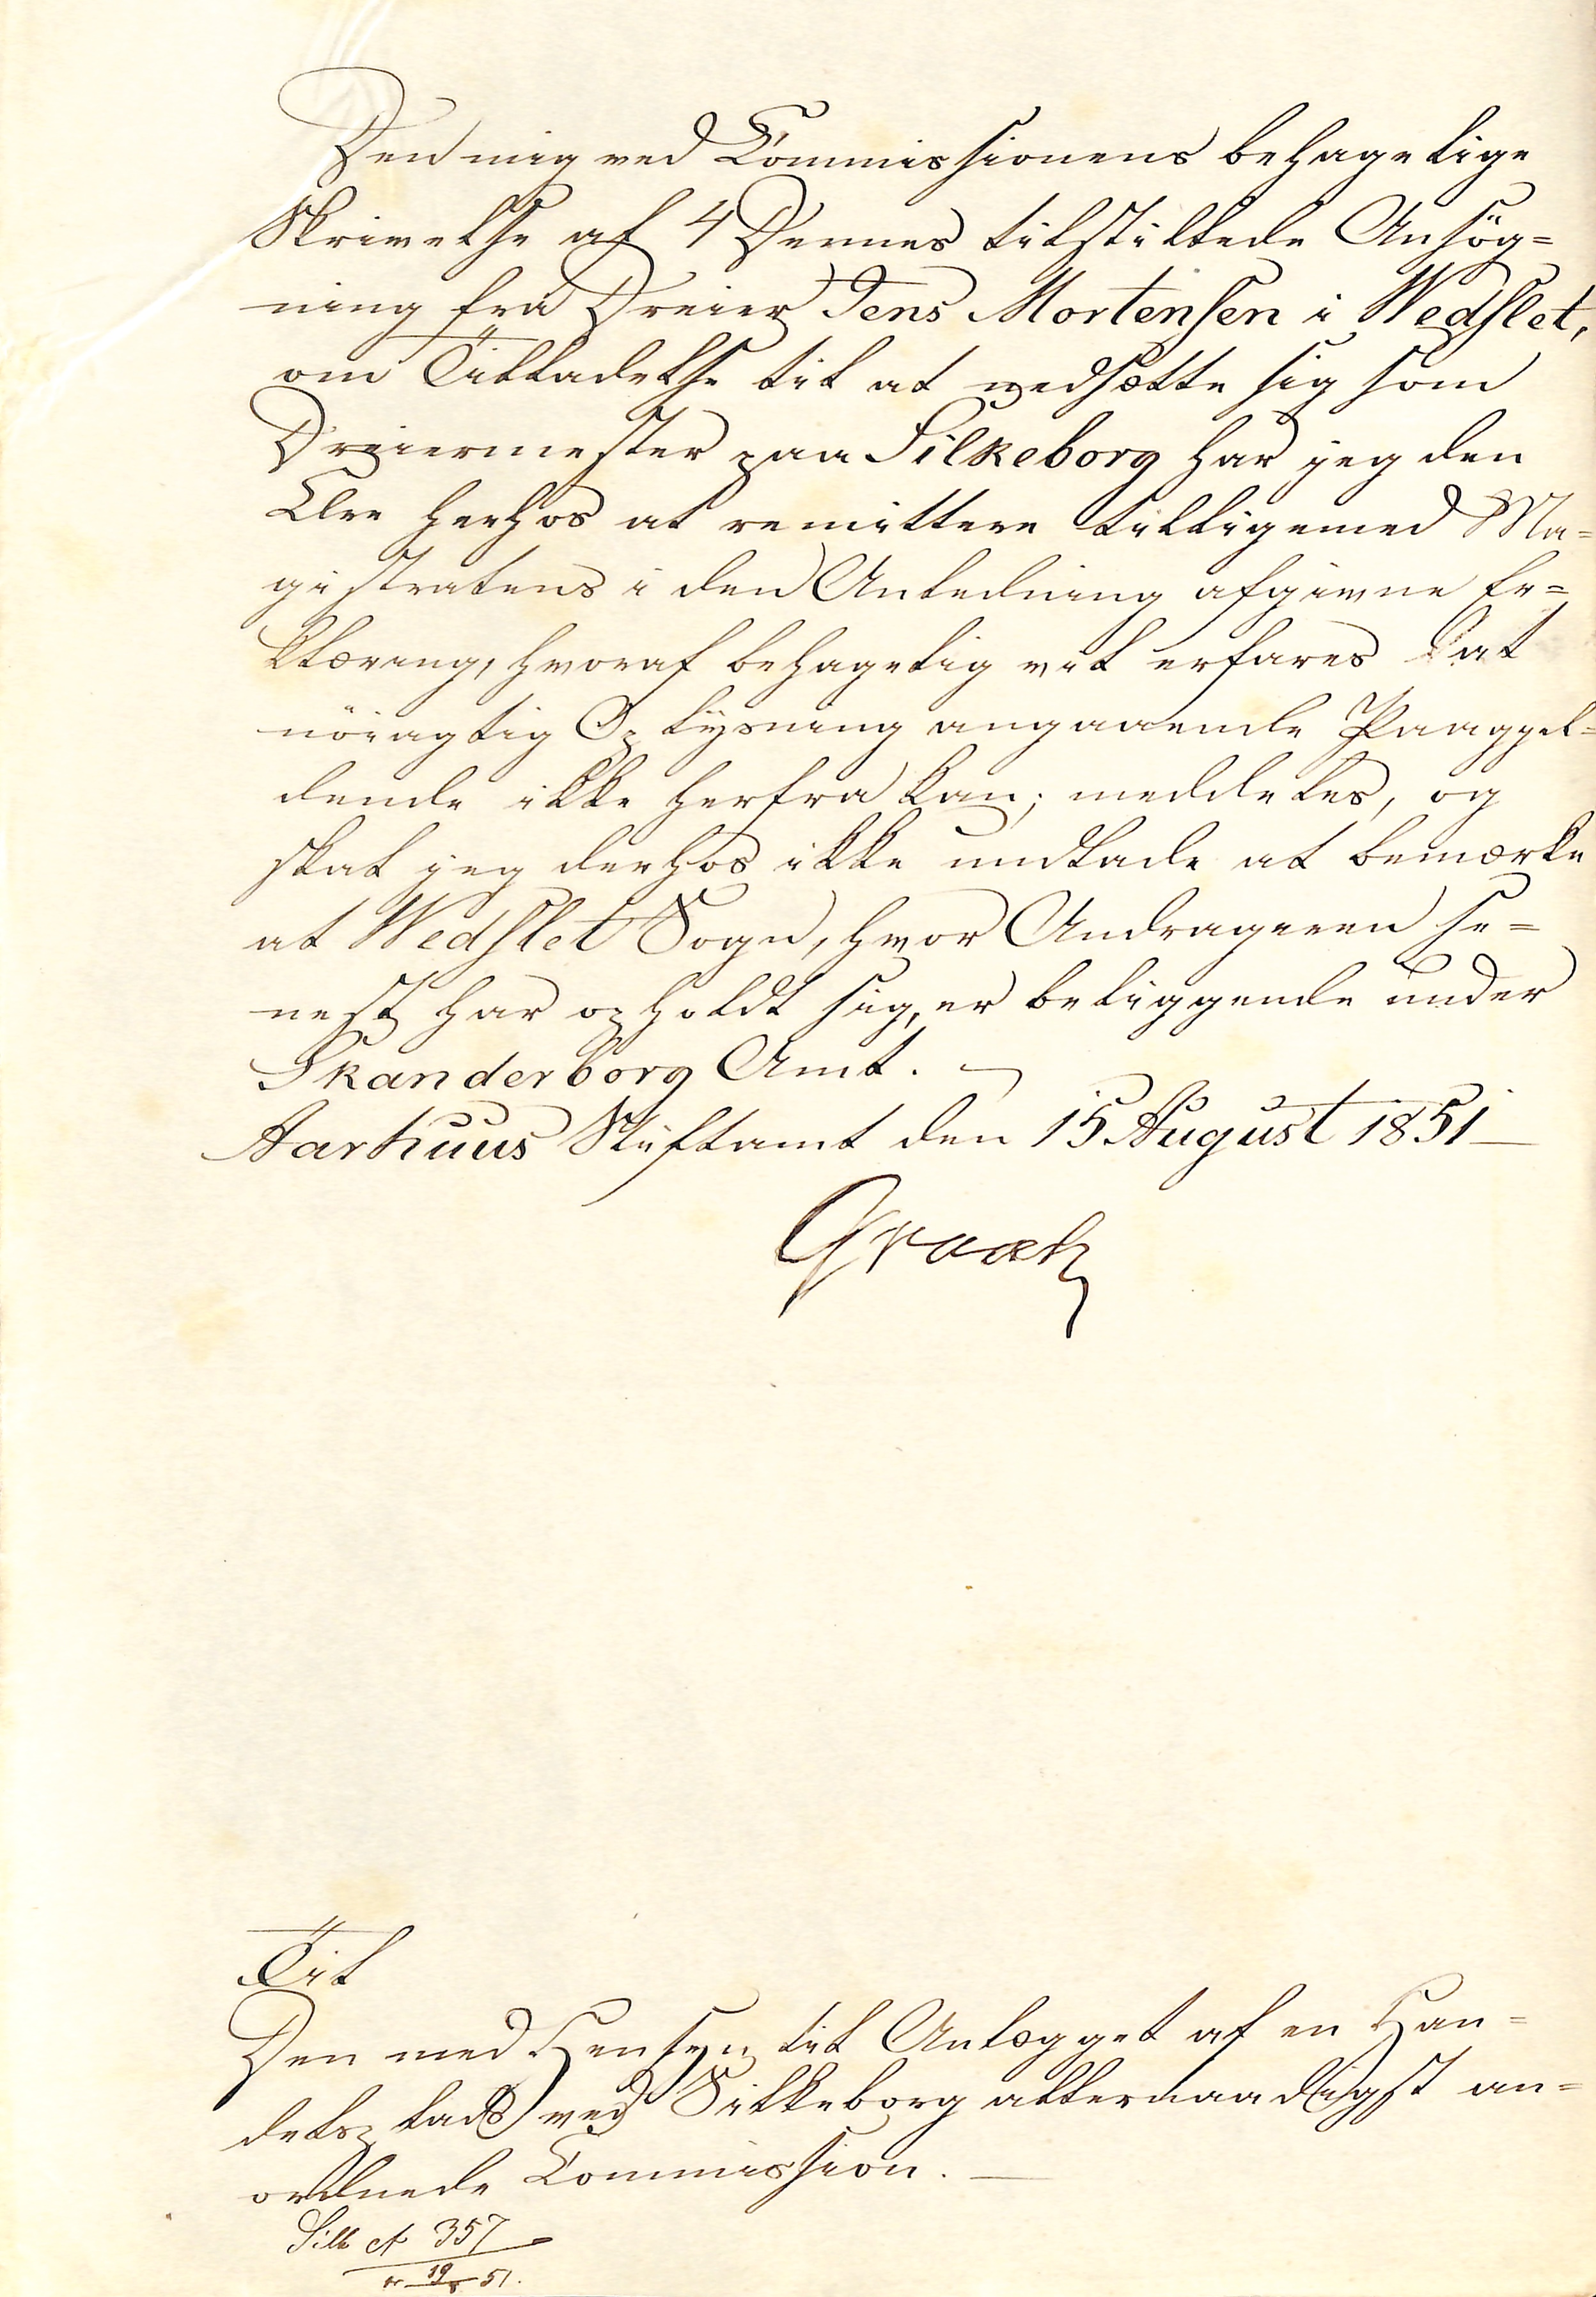 Den mig ved Commissionens behagelige
Skrivelse af 4 Dennes tilstillede Ansög=
ning fra Dreier Jens Mortensen i Wedslet,
om Tilladelse til at nedsætte sig som
Dreiermester paa Silkeborg har jeg den
Ære herhos at remittere tilligemed Ma=
gistratens i den Anledning afgivne Er=
klæring, hvoraf behageligen vil erfares at
nöiagtig Oplysning angaaende Paagjel=
dende ikke herfra kan meddeles, og
skal jeg derhos ikke undlade at bemærke
at Wedslet Sogn, hvor Andrageren se=
nest har opholdt sig, er beliggende under
Skanderborg Amt.
Aarhuus Stiftamt den 15 August 1851
Graah
Til
Den med Hensyn til Anlægget af en Han=
delsplads ved Silkeborg allernaadigst an=
ordnede Commission.
Silk A 357
19/8 51.